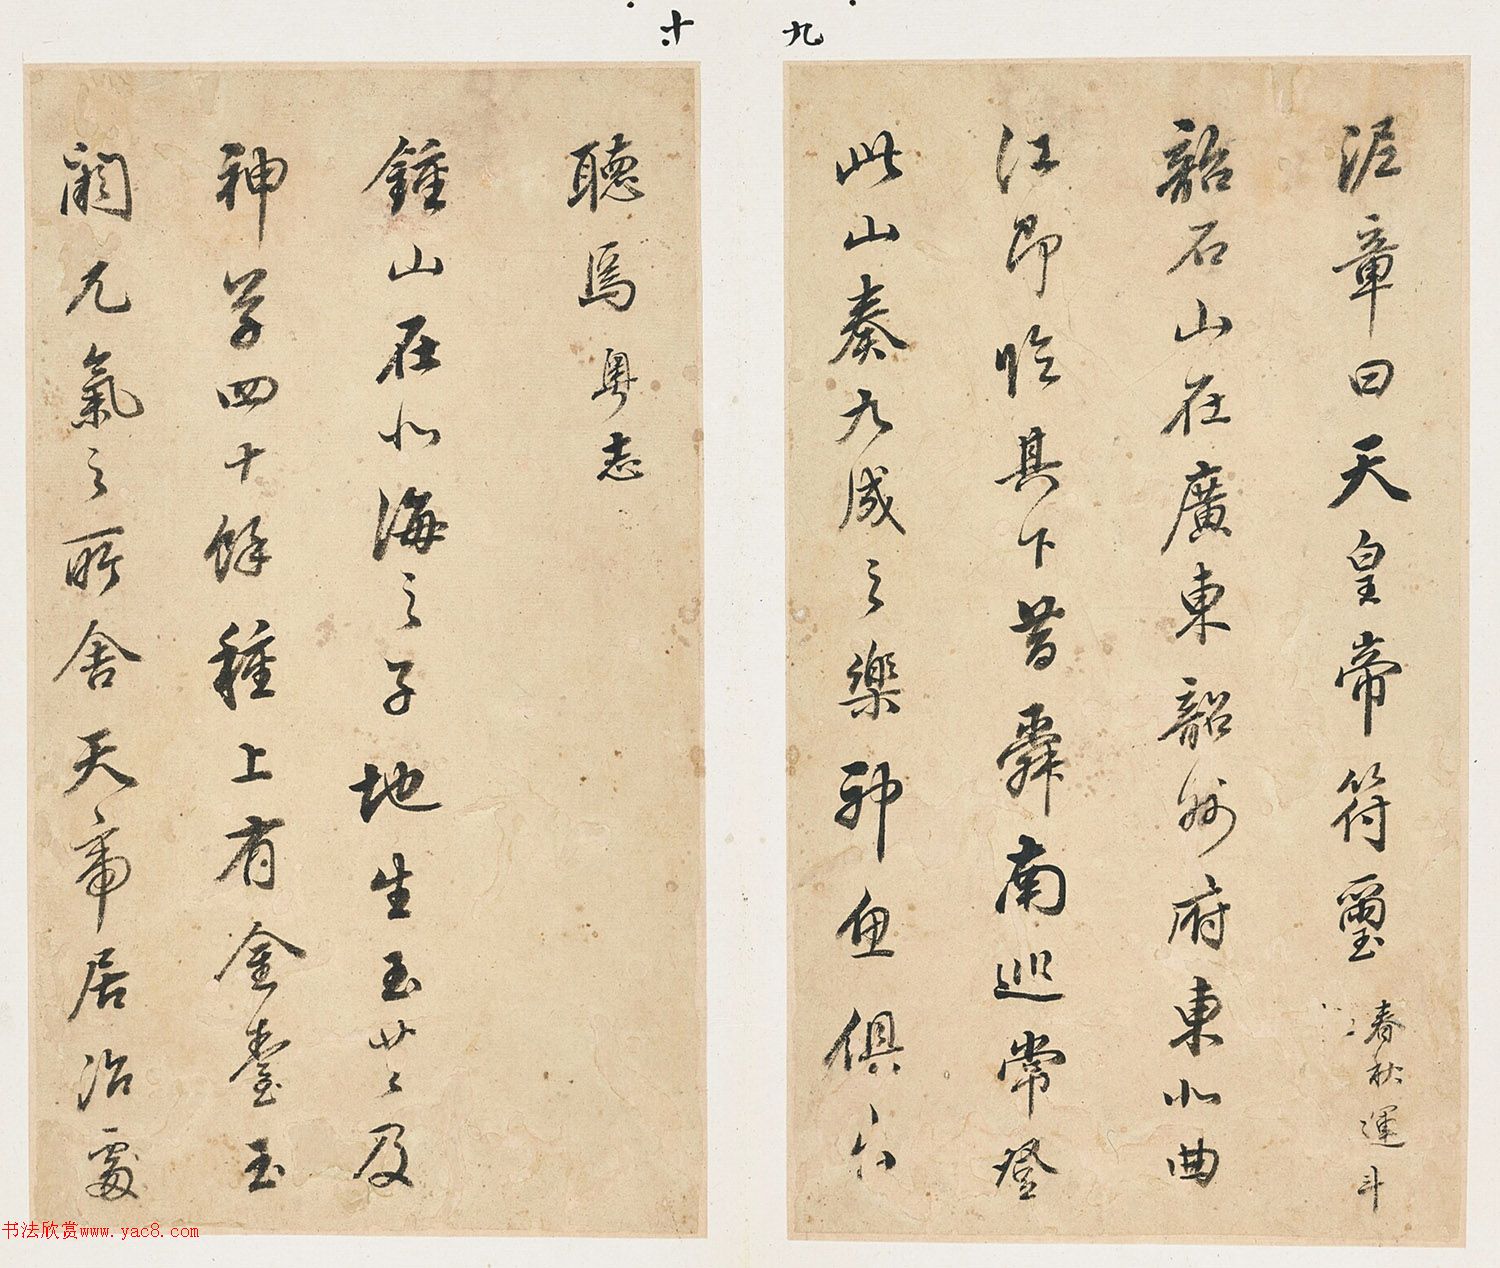 九
泥章曰天皇帝符璽 春秋運斗
韶石山在廣東韶州府東北曲
江即臨其下昔舜南巡常登
此山奏九成之樂神魚俱
十
聽焉 粵志
鍾山在北海之子地生玉芝及
神草四十餘種上有金臺玉
闕元氣之所舍天帝居治處
书法欣赏www.yac8.com